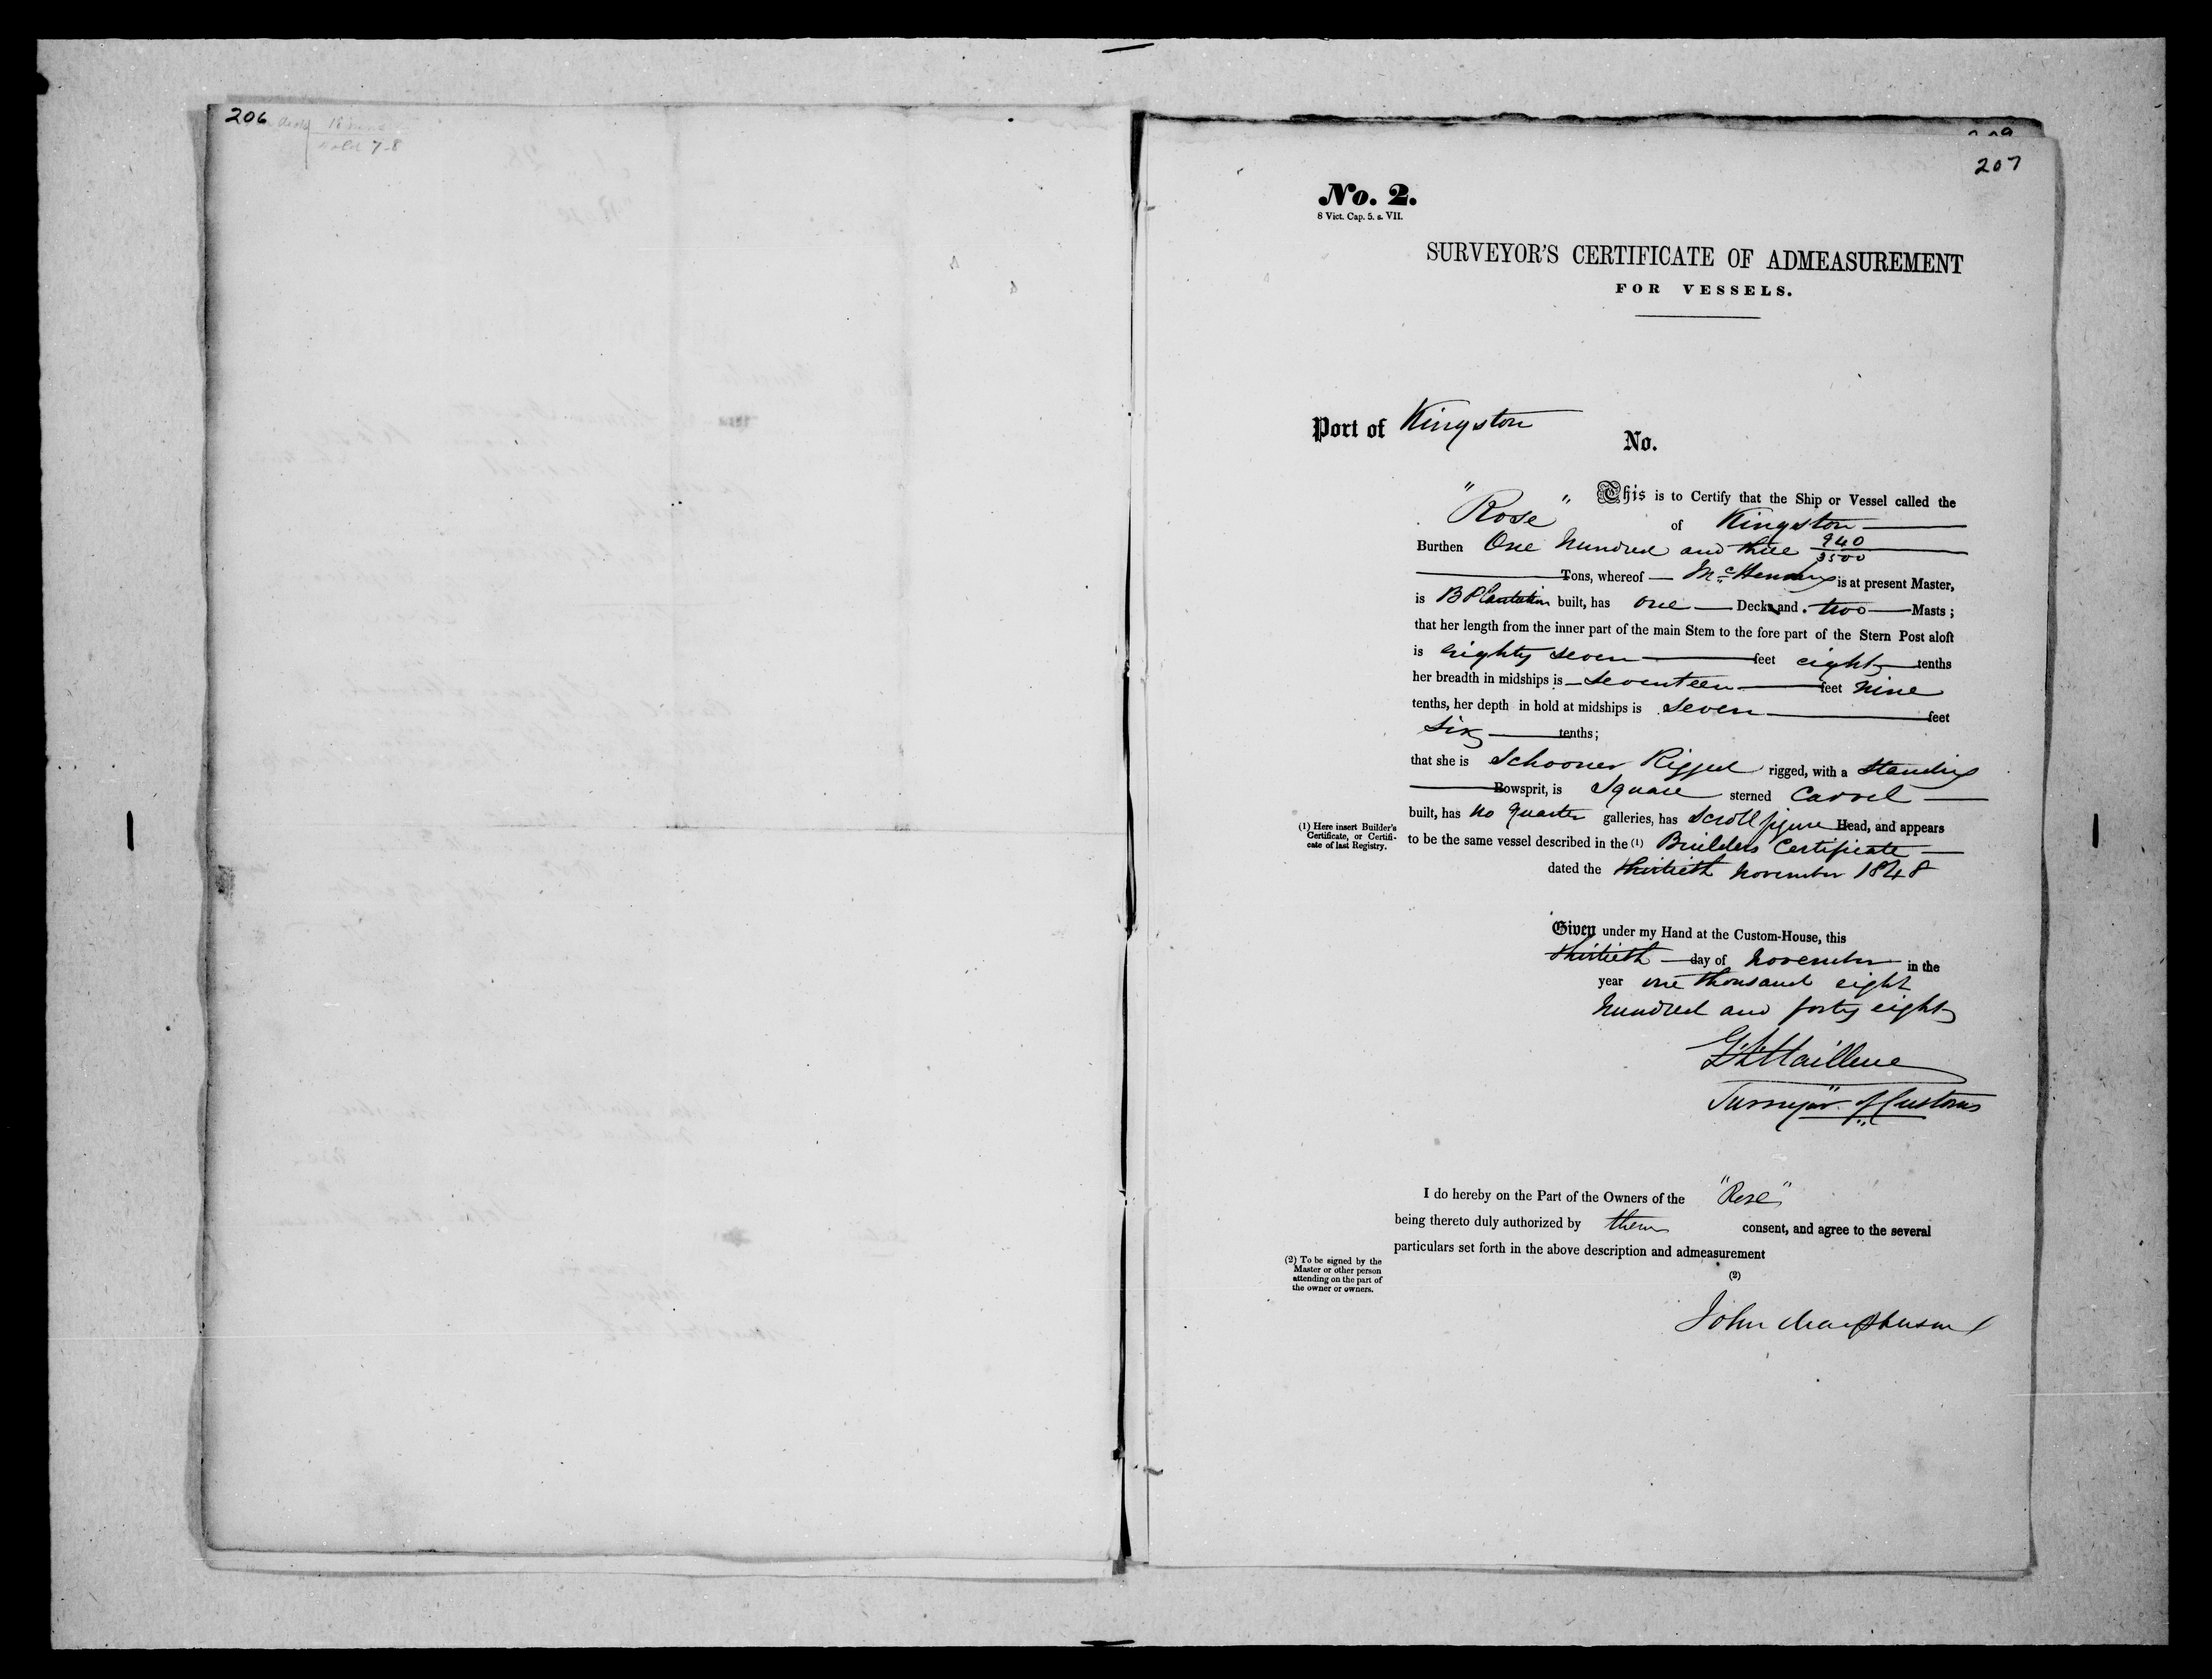 206
7-8
207
No. 2.
8 Vict. Cap. 5. s. VII.
SURVEYOR'S CERTIFICATE OF ADMEASUREMENT
FOR VESSELS.
Port of Kingston
No.
This is to Certify that the Ship or Vessel called the
"Rose" of Kingston
Burthen One hundred and three 940/3500
Tons, whereof is at present Master,
is B Plantation built, has one Decks and two Masts;
that her length from the inner part of the main Stem to the fore part of the Stern Post aloft
is eighty seven feet eight tenths
her breadth in midships is seventeen feet nine
tenths, her depth in hold at midships is seven feet
six tenths;
that she is Schooner Rigged rigged, with a standing
Bowsprit, is Square sterned Carvel
built, has no quarter galleries, has scroll figure Head, and appears
(1) Here insert Builder's
Certificate, or Certifi-
cate of last Registry.
to be the same vessel described in the (1) Builders Certificate
dated the thirtieth November 1848
Given under my Hand at the Custom-House, this
thirtieth day of November in the
year one thousand eight
hundred and forty eight
Surveyor of Customs
I do hereby on the Part of the Owners of the "Rose"
being thereto duly authorized by them consent, and agree to the several
particulars set forth in the above description and admeasurement
(2) To be signed by the
Master or other person
attending on the part of
the owner or owners.
(2)
John